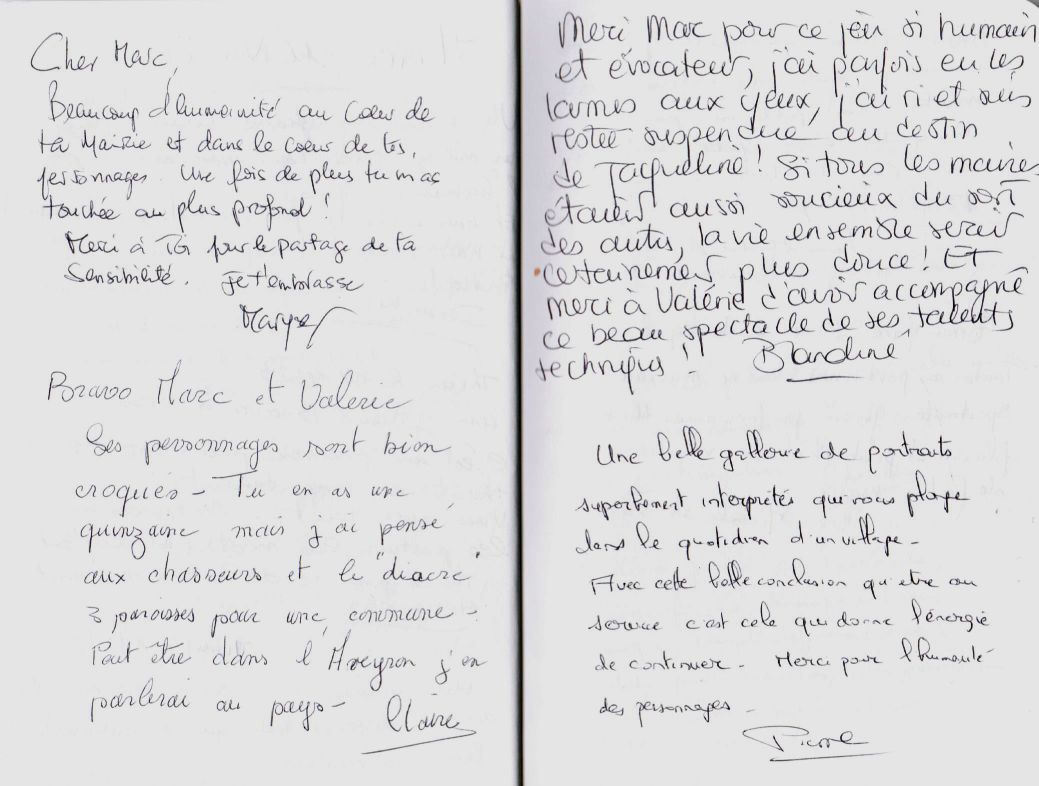 Cher Marc,
Beaucoup d'humanité au Coeur de
ta Mairie et dans le coeur de tes
personnages. Une fois de plus tu m'as
touchée au plus profond !
Merci à Toi pour le partage de ta
Sensibilité. Je t'embrasse
Bravo Marc et Valerie
Ses personnages sont bien
croqués - Tu en as une
quinzaine mais j'ai pensé
aux chasseurs et le "diacre"
3 paroisses pour une commune -
Peut être dans l'Aveyron j'en
parlerai au pays - Claire
Merci Marc pour ce jeu si humain
et évocateur, j'ai parfois eu les
larmes aux yeux, j'ai ri et suis
restée suspendue au destin
de Jaqueline ! Si tous les maires
étaient aussi soucieux du sort
des autres, la vie ensemble serait
certainement plus douce ! Et
merci à Valérie d'avoir accompagné
ce beau spectacle de ses talents
techniques ! Blandine
Une belle gallerie de portraits
superbement interprétés qui nous plonge
dans le quotidien d'un village -
Avec cette belle conclusion qu'etre au
service c'est cela qui donne l'énergie
de continuer - Merci pour l'humanité
des personnages -
Pierre